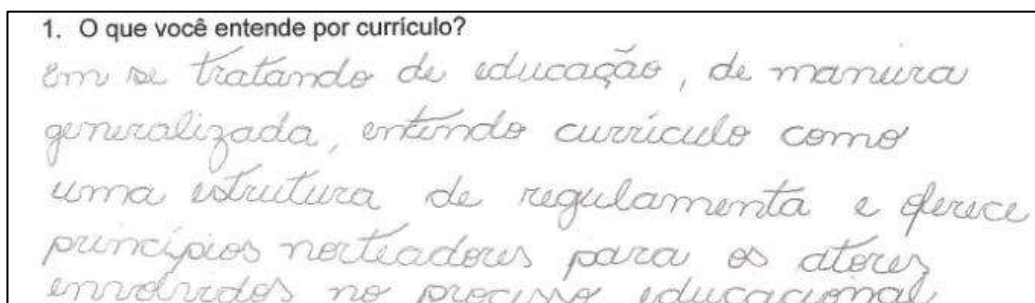 1. O que você entende por currículo?
Em se tratando de educação, de maneira
generalizada, entendo currículo como
uma estrutura de regulamenta e oferece
princípios norteadores para os atores
envolvidos no processo educacional